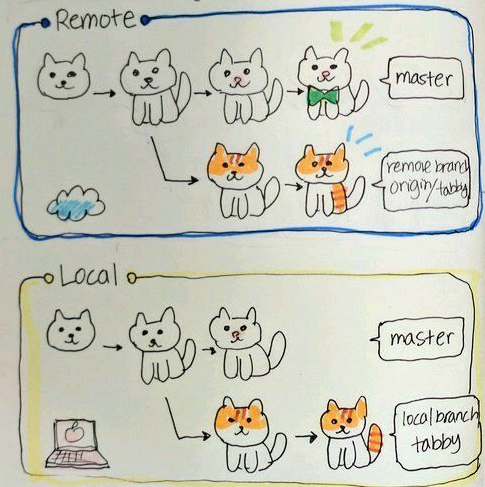 Remote
master
remote branch
origin/tabby
Local
master
local branch
tabby